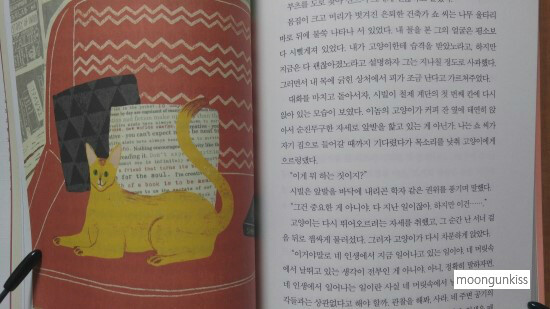 you can't expect
the soul.
of a book is to be
몸집이 크고 머리가 벗겨진 은퇴한 건축가 쇼 씨는 나무 울타리
바로 뒤에 불쑥 나타나 서 있었다. 내 꼴을 본 그의 얼굴은 평소보
다 시뻘게져 있었다. 내가 고양이한테 습격을 받았노라고, 하지만
지금은 다 괜찮아졌노라고 설명하자 그는 지나칠 정도로 사과했다.
그러면서 내 목에 긁힌 상처에서 피가 조금 난다고 가르쳐주었다.
대화를 마치고 돌아서자, 시빌이 철제 계단의 첫 번째 칸에 다시
앉아 있는 모습이 보였다. 이놈의 고양이가 커피 잔 옆에 태연히 앉
아서 순진무구한 자세로 앞발을 핥고 있는 게 아닌가. 나는 쇼 씨가
자기 집으로 들어갈 때까지 기다렸다가 목소리를 낮춰 고양이에게
으르렁댔다.
"이게 뭐 하는 짓이지?"
시빌은 앞발을 바닥에 내리곤 학자 같은 권위를 풍기며 말했다.
"그건 중요한 게 아니야. 다 지난 일이잖아. 하지만 이건……."
고양이는 다시 뛰어오르려는 자세를 취했고, 그 순간 난 서너 걸
음 뒤로 잽싸게 물러섰다. 그러자 고양이가 다시 차분하게 앉았다.
"이거야말로 네 인생에서 지금 일어나고 있는 일이야. 네 머릿속
에서 날뛰고 있는 생각이 전부인 게 아니야. 아니, 정확히 말하자면,
네 인생에서 일어나는 일이란 사실 네 머릿속에서
각들과는 상관없다고 해야 할까. 관찰을 해봐, 사라. 네 주변 공기의
moongunkiss